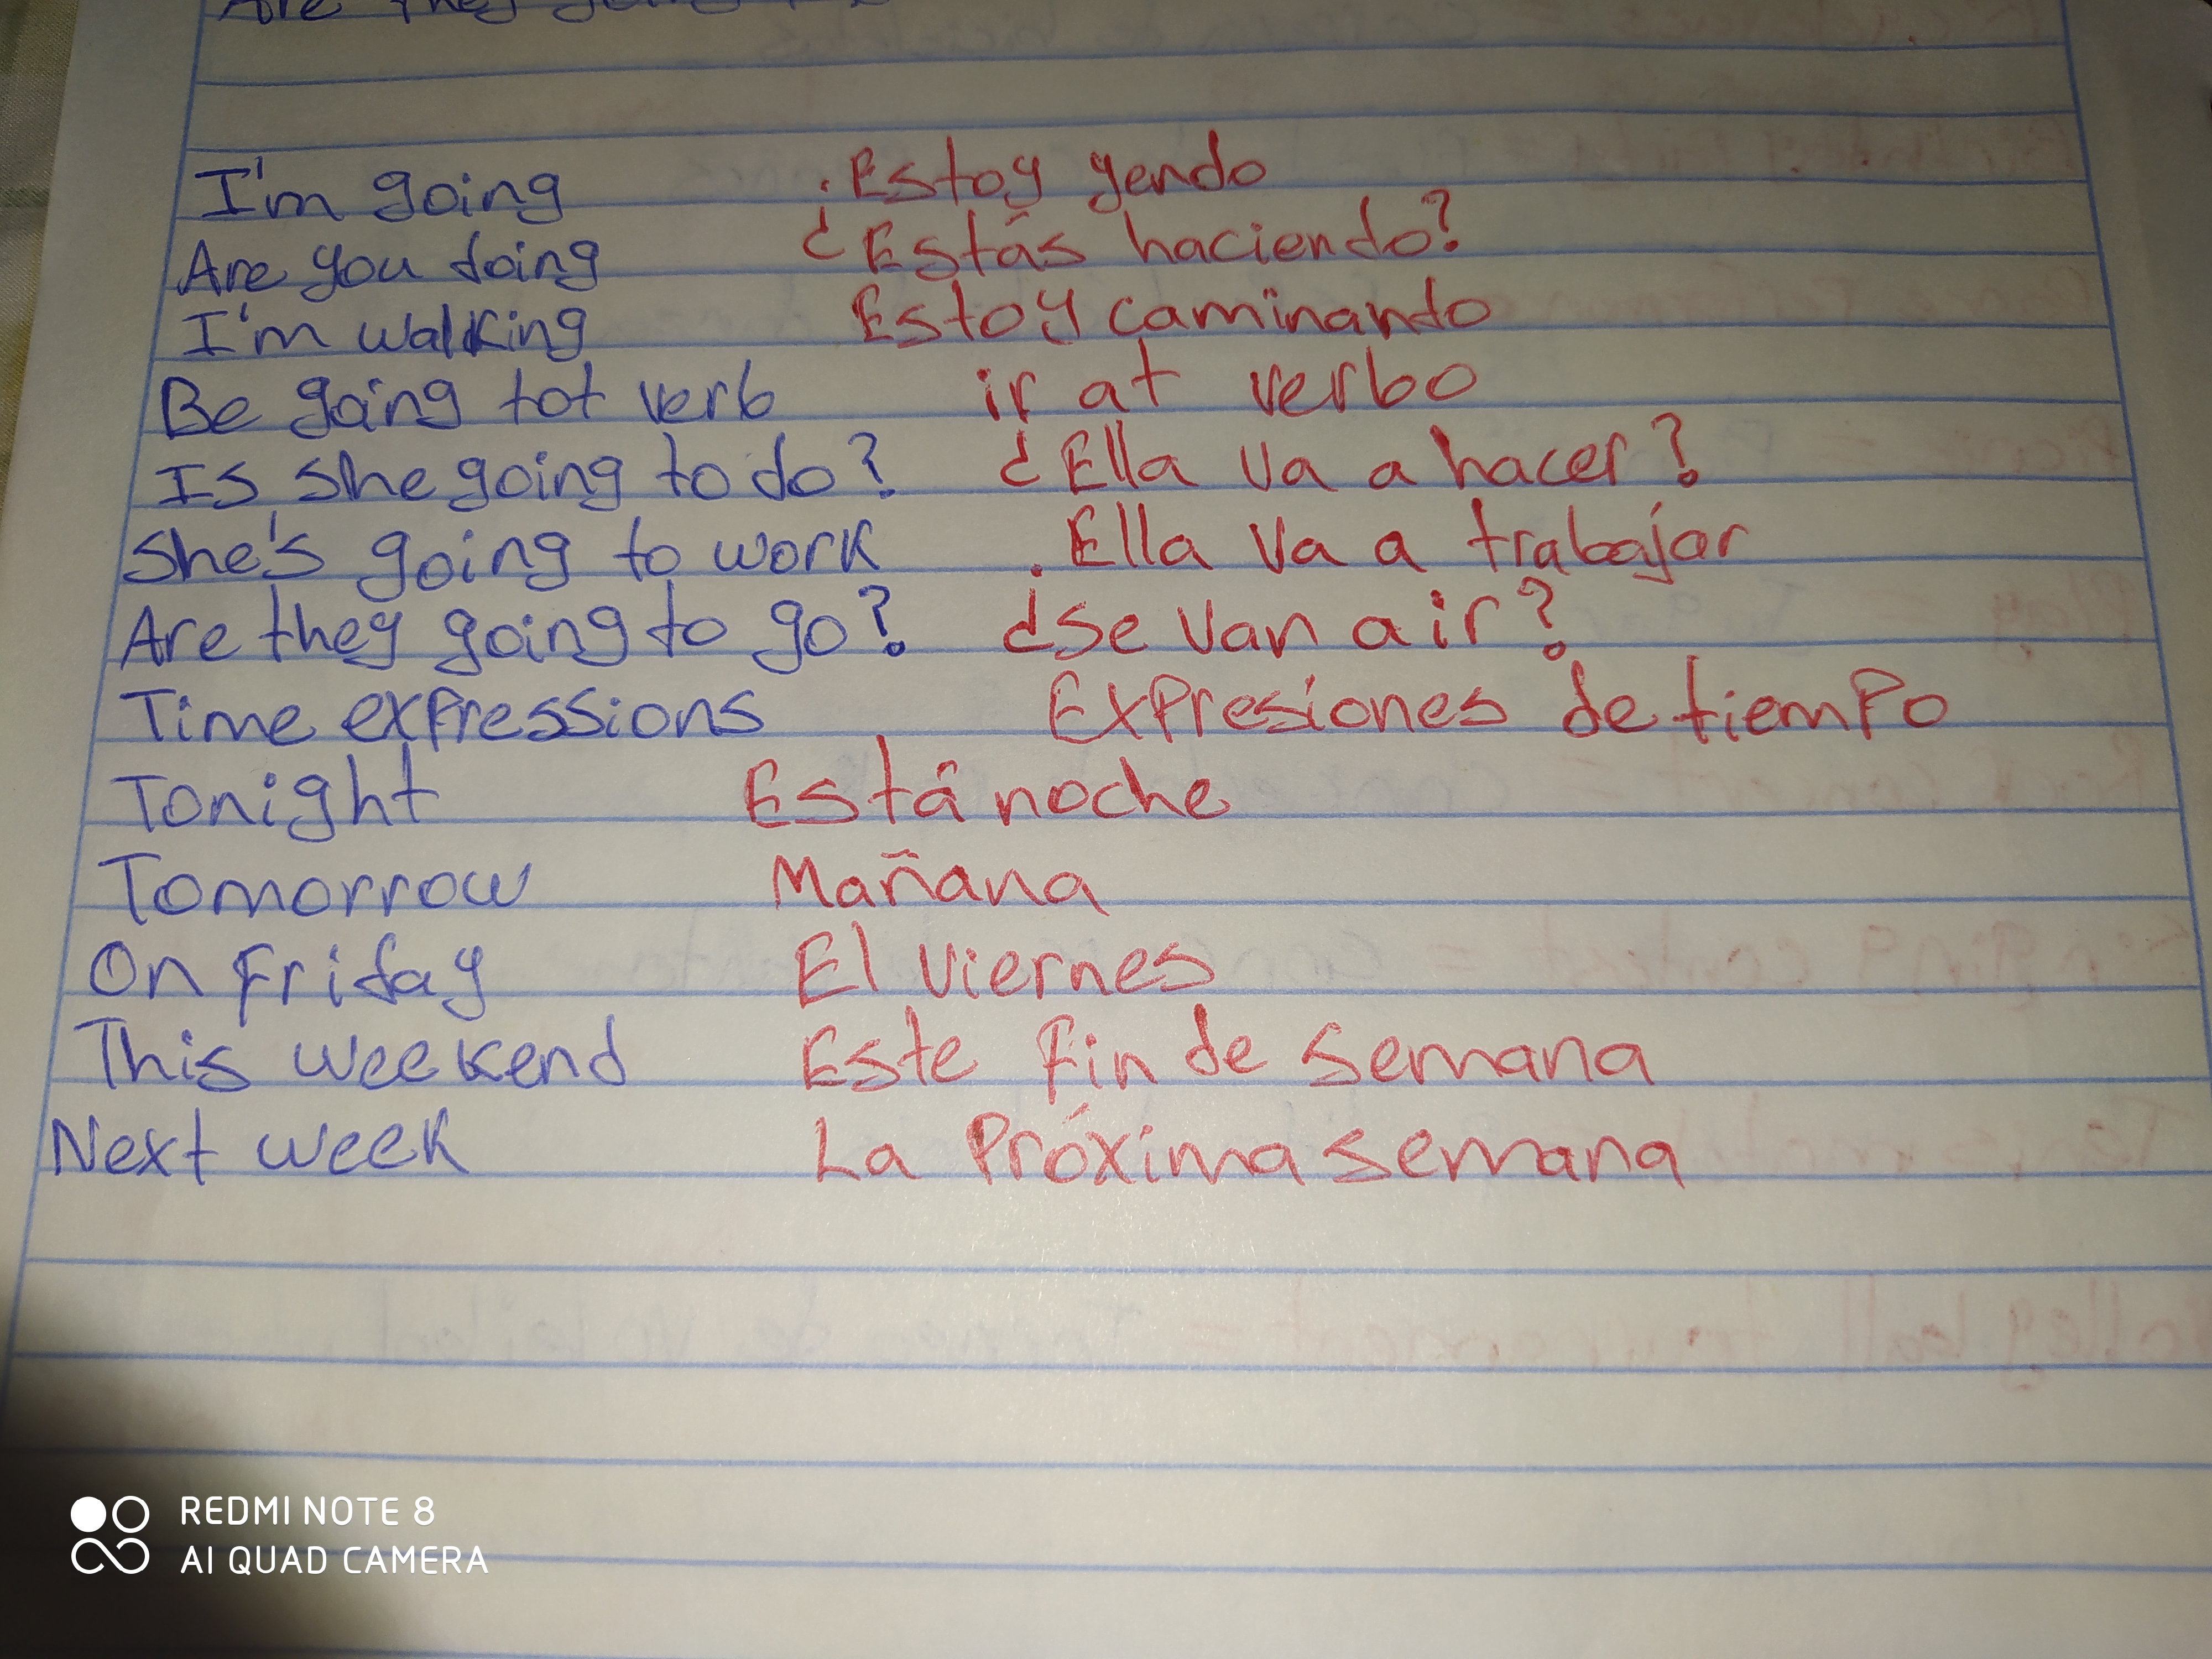 Are they going to
I'm going Estoy yendo
Are you doing ¿Estás haciendo?
I'm walking Estoy caminando
Be going tot verb ir at verbo
Is she going to do? ¿Ella va a hacer?
She's going to work Ella va a trabajar
Are they going to go? ¿Se van a ir?
Time expressions Expresiones de tiempo
Tonight Está noche
Tomorrow Mañana
On Friday El viernes
This weekend Este fin de semana
Next week La Próxima semana
REDMI NOTE 8
AI QUAD CAMERA